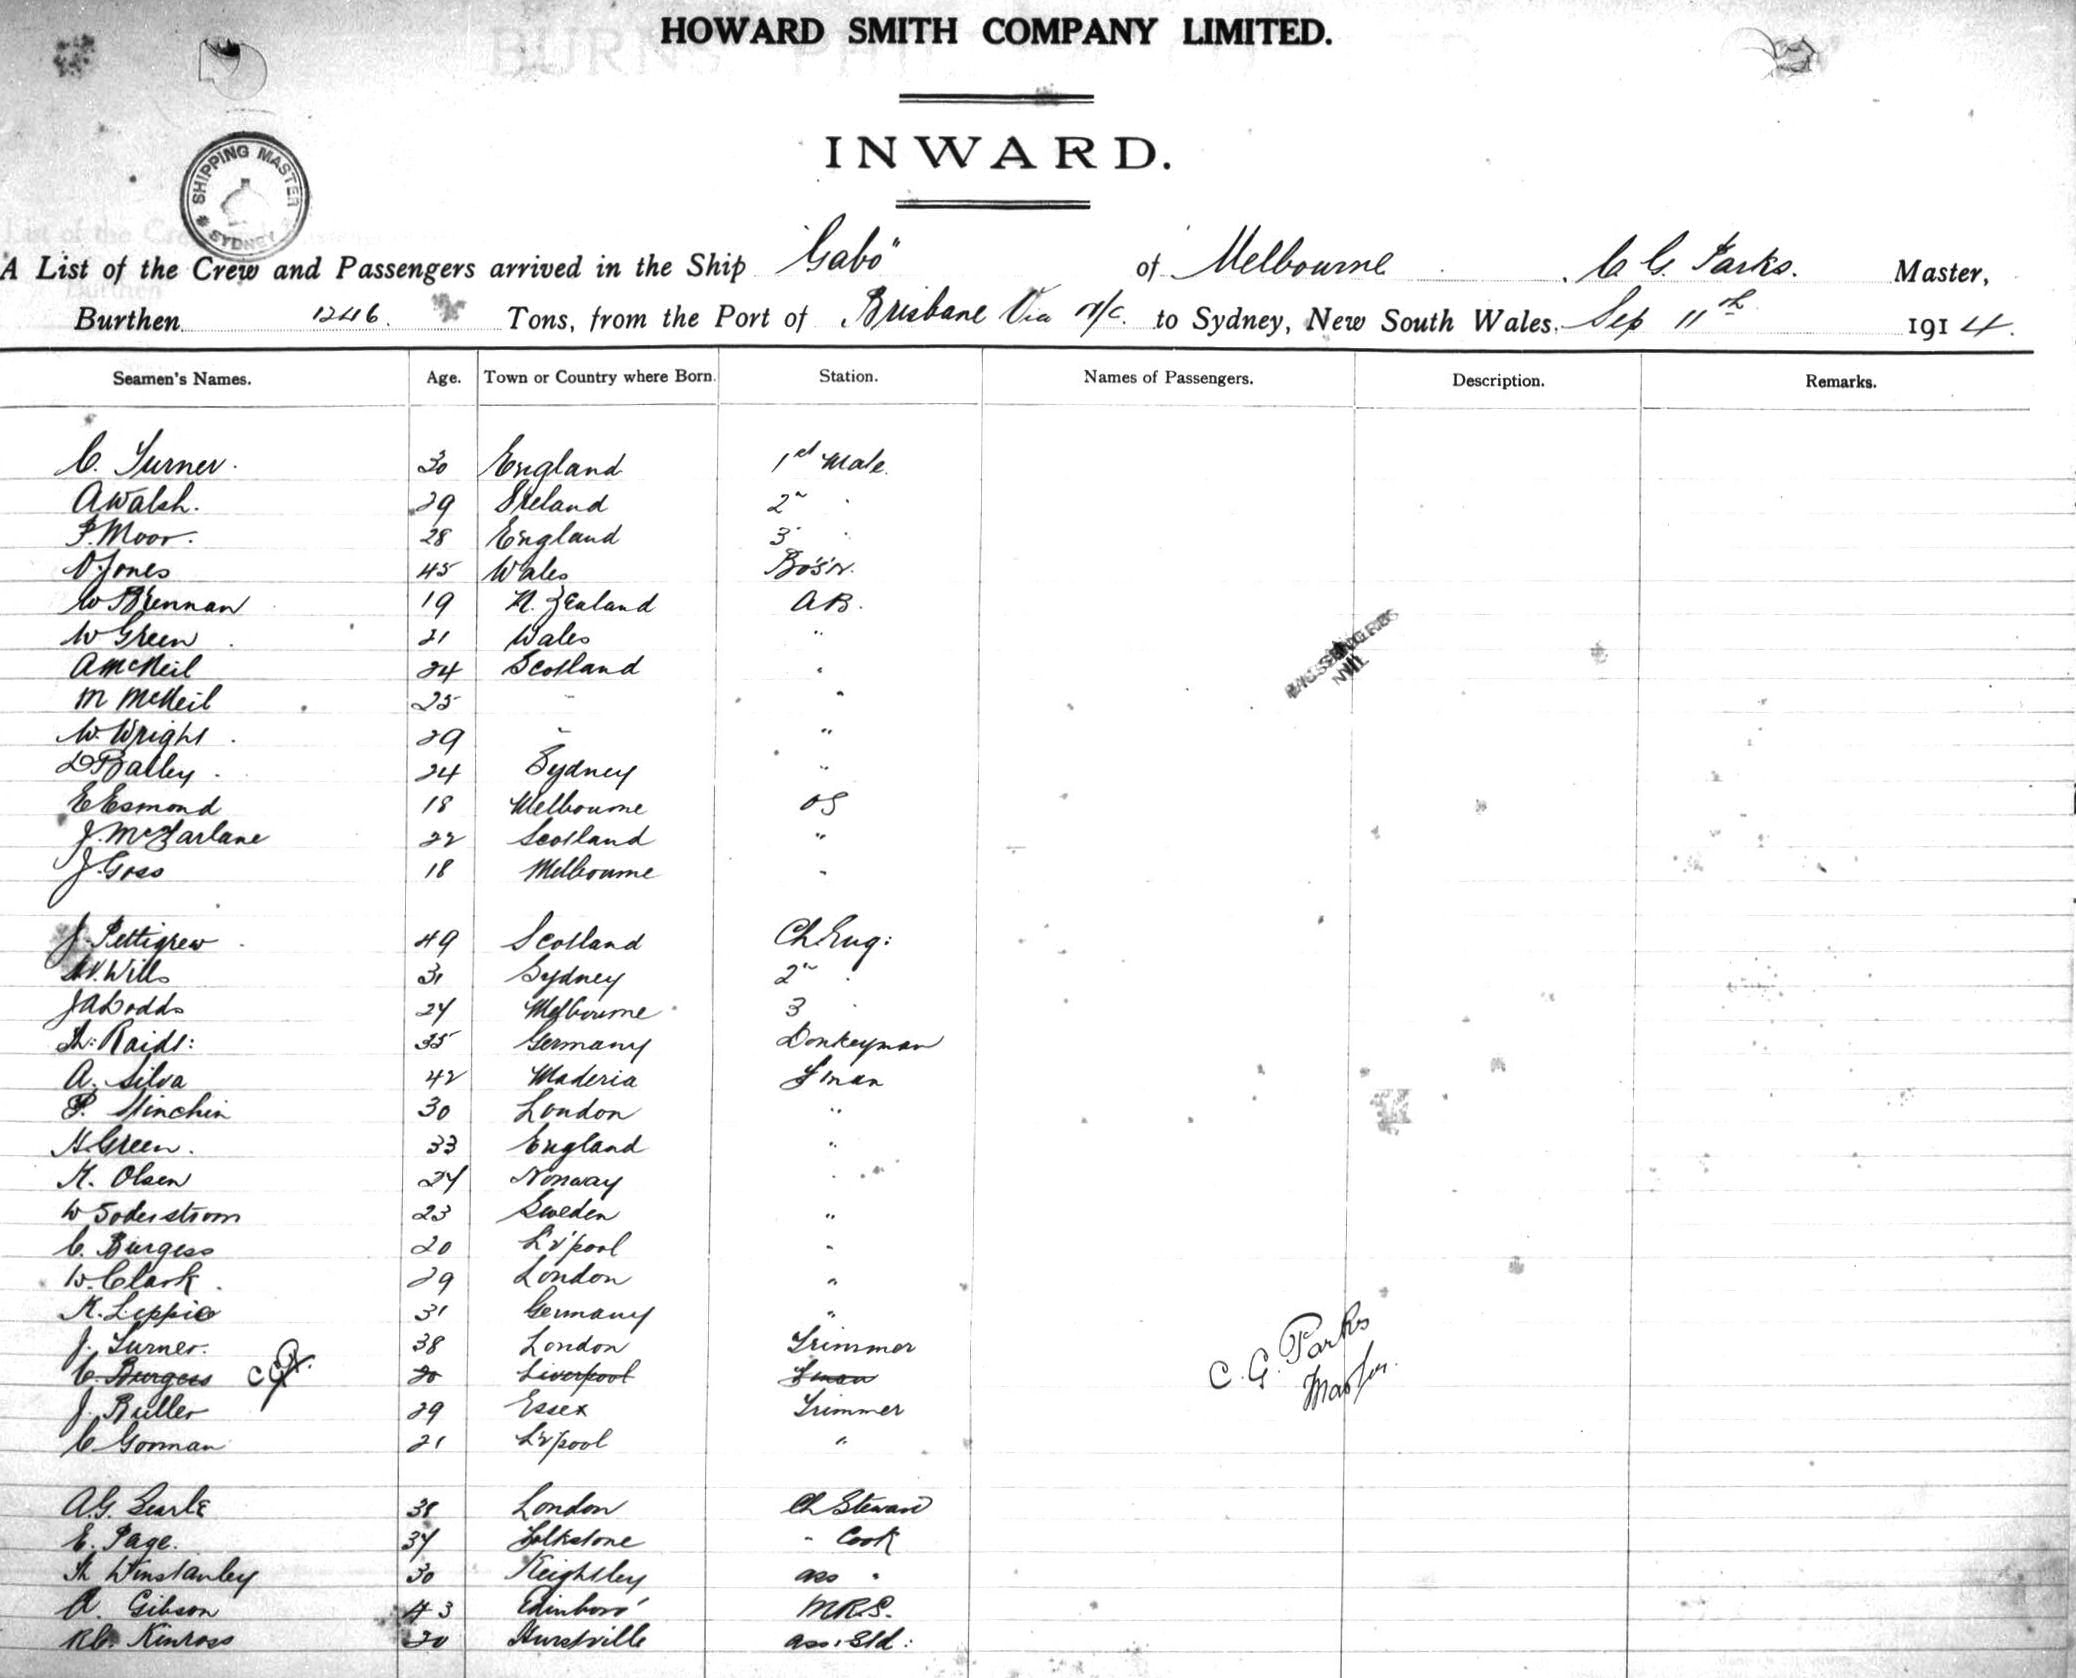 HOWARD SMITH COMPANY LIMITED.
INWARD.
SHIPPING MASTER
SYDNEY
A List of the Crew and Passengers arrived in the Ship "Gabo" of Melbourne, C G. Parks. Master,
Burthen 1246. Tons, from the Port of Brisbane Via N/C. to Sydney, New South Wales. Sep 11th 1914.
Seamen's Names. Age. Town or Country where Born. Station. Names of Passengers. Description. Remarks.
C. Turner. 30 England 1st Mate
A Walsh. 29 Ireland 2" "
F. Moor. 28 England 3 "
D. Jones 45 Wales Bos'n.
W Brennan 19 N. Zealand AB.
W Green 21 Wales "
A McNeil 24 Scotland "
M McNeil 25 " "
W. Wright 29 " "
D Bailey 24 Sydney "
E Esmond 18 Melbourne OS
J. McFarlane 22 Scotland "
J. Goss 18 Melbourne "
PASSENGERS
NIL
J. Pettigrew 49 Scotland Ch. Eng:
Wills 31 Sydney 2" "
J A Dodds 24 Melbourne 3 "
35 Germany Donkeyman
A. Silva 42 Maderia F'man
P. Minchin 30 London "
H. Green. 33 England "
K. Olsen 24 Norway "
W Soderstrom 23 Sweden "
C. Burgess 20 L'pool "
W. Clark 29 London "
31 Germany "
J. Turner. 38 London Trimmer
C. Burgess 20 Liverpool F'man
C G P.
J. Butler 29 Essex Trimmer
C Gorman 21 L'pool "
C. G. Parks
Master.
A.G. Searle 38 London Ch Steward
E. Page. 34 Folkstone " Cook
Winstanley 30 Keightley ass "
A. Gibson 43 Edinboro' M.R.S.
Kinross 20 Hurstville ass. Std: